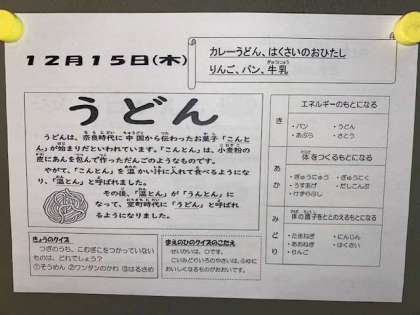 12月15日(木)
カレーうどん、はくさいのおひたし
りんご、パン、牛乳
うどん
うどんは、奈良時代に中国から伝わったお菓子「こんと
ん」が始まりだといわれています。「こんとん」は、小麦粉の
皮にあんを包んで作っただんごのようなものです。
やがて、「こんとん」を温かい汁に入れて食べるようにな
り、「温とん」と呼ばれました。
その後、「温とん」が「うんとん」に
なって、室町時代に「うどん」と呼ばれ
るようになりました。
きょうのクイズ
つぎのうち、こむぎこをつかっていない
ものは、どれでしょう？
①そうめん ②ワンタンのかわ ③はるさめ
まえのひのクイズのこたえ
せいかいは、○です。
こいみどりいろのやさいは、ふゆに
おいしくなるものがおおいです。
き
エネルギーのもとになる
・パン ・うどん
・あぶら ・さとう
あか
体をつくるもとになる
・ぎゅうにゅう ・ぎゅうにく
・うすあげ ・だしこんぶ
・けずりぶし
みどり
体の調子をととのえるもとになる
・たまねぎ ・にんじん
・あおねぎ ・はくさい
・りんご